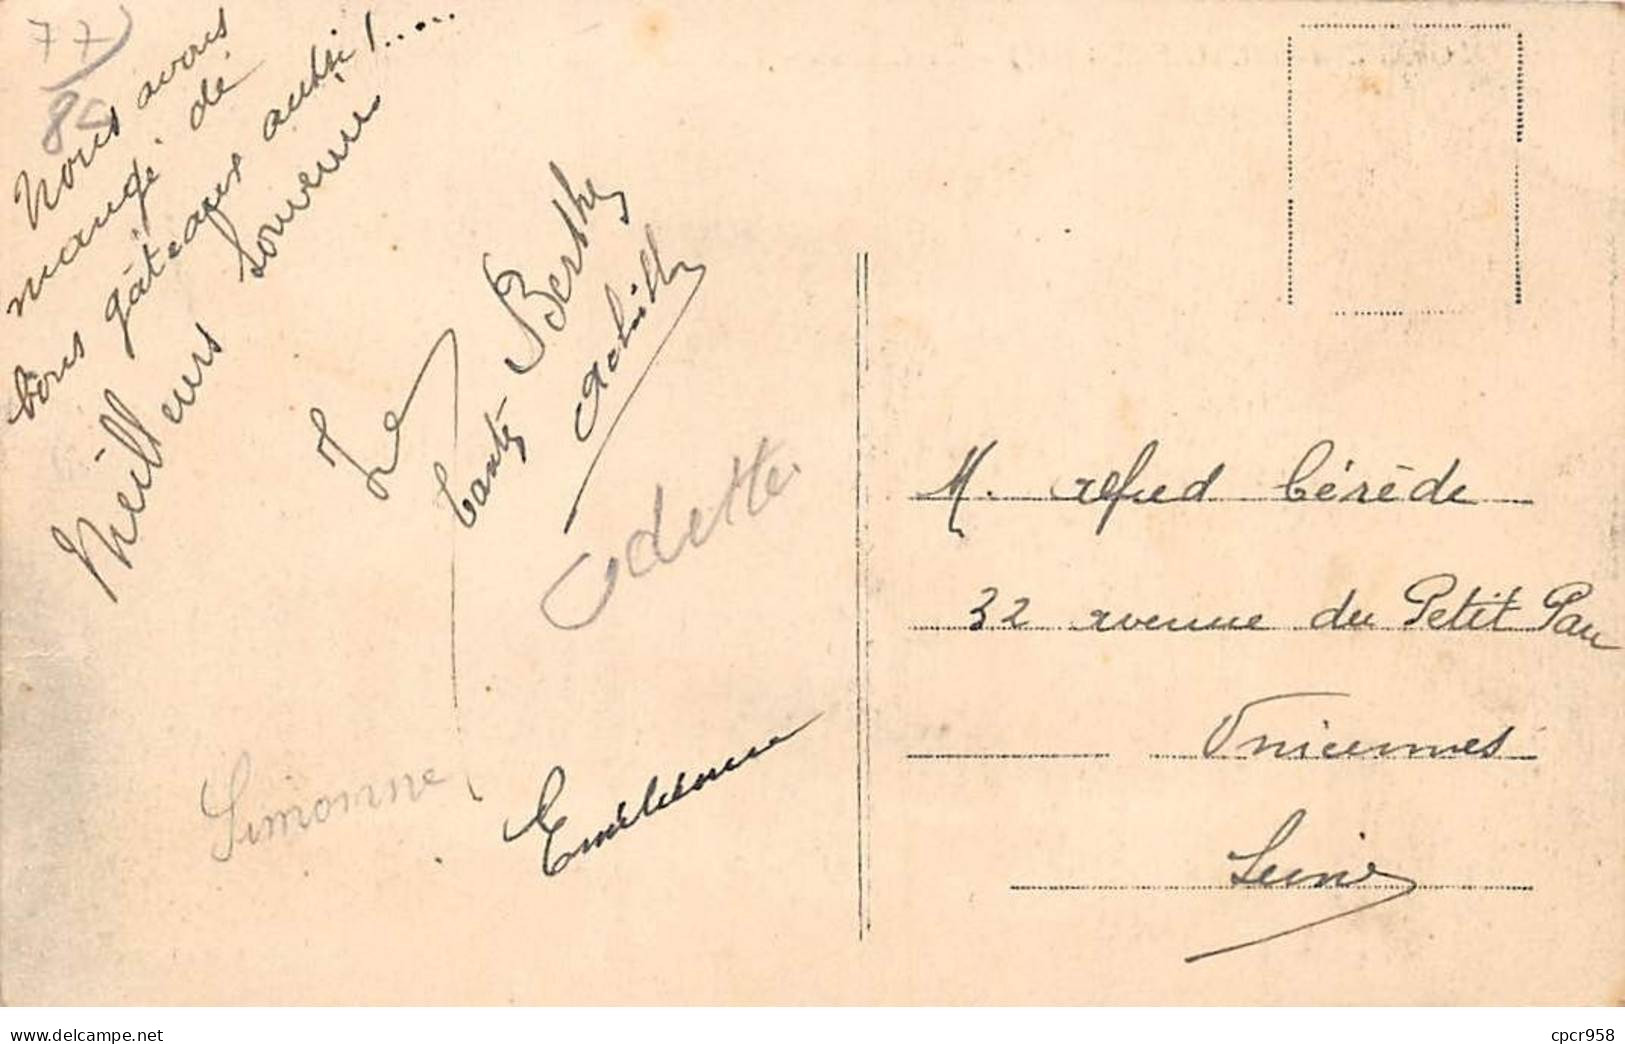 77
Nous avons
mangé de
bons gâteaux aussi !.....
Meilleurs souvenirs
Tante Berthe
Achille
Odette
Simonne
Emilienne
M. Alfred Cérède
32 avenue du Petit Parc
Vincennes
Seine
www.delcampe.net
cpcr958